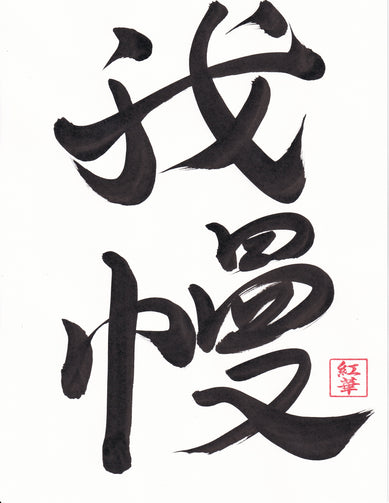 我
慢
紅華